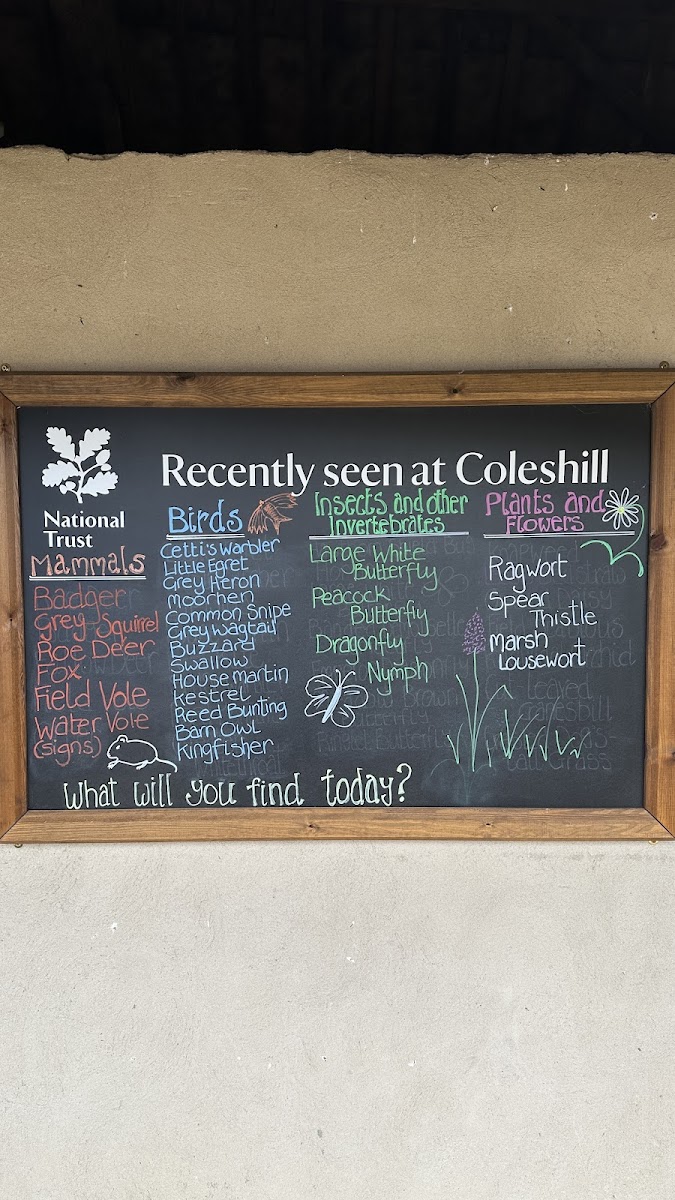 National
Trust
Recently seen at Coleshill
Mammals
Badger
Grey Squirrel
Roe Deer
Fox
Field Vole
Water Vole
(signs)
Birds
Cetti's Warbler
Little Egret
Grey Heron
Moorhen
Common Snipe
Grey Wagtail
Buzzard
Swallow
House Martin
Kestrel
Reed Bunting
Barn Owl
Kingfisher
Insects and other
Invertebrates
Large White
Butterfly
Peacock
Butterfly
Dragonfly
Nymph
Plants and
Flowers
Ragwort
Spear
Thistle
Marsh
Lousewort
What will you find today?